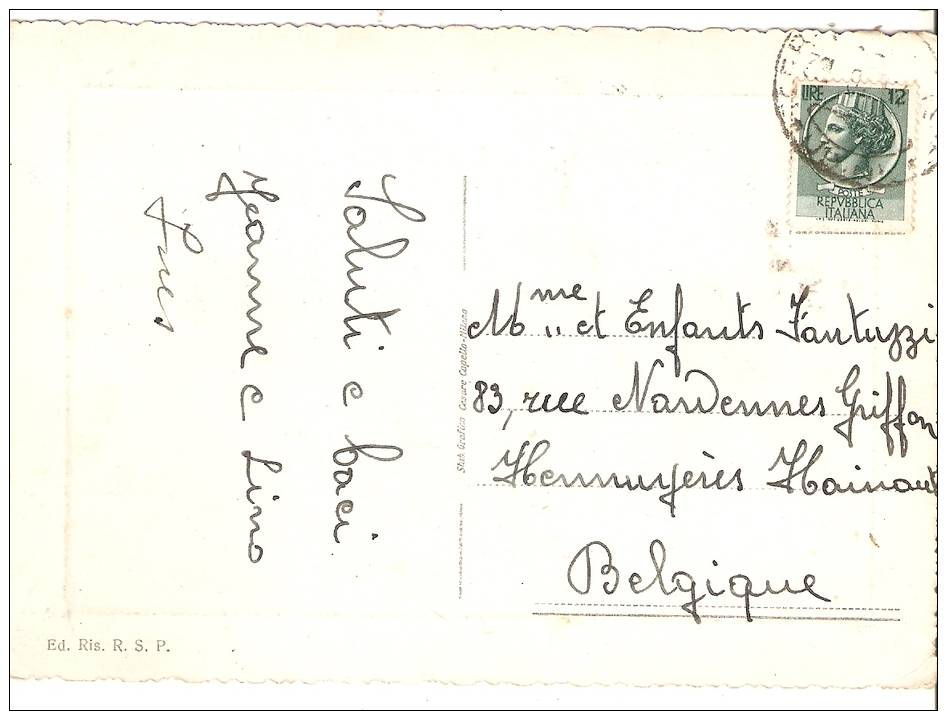 Saluti e baci
Jeanne e Lino
Ines
LIRE 12
POSTE
REPVBBLICA
ITALIANA
Mme " et Enfants Fantuzzi
83, rue Nardennes Griffon
Hennuyères Hainaut
Belgique
Stab. Grafico Cesare Capello-Milano
Ed. Ris. R. S. P.